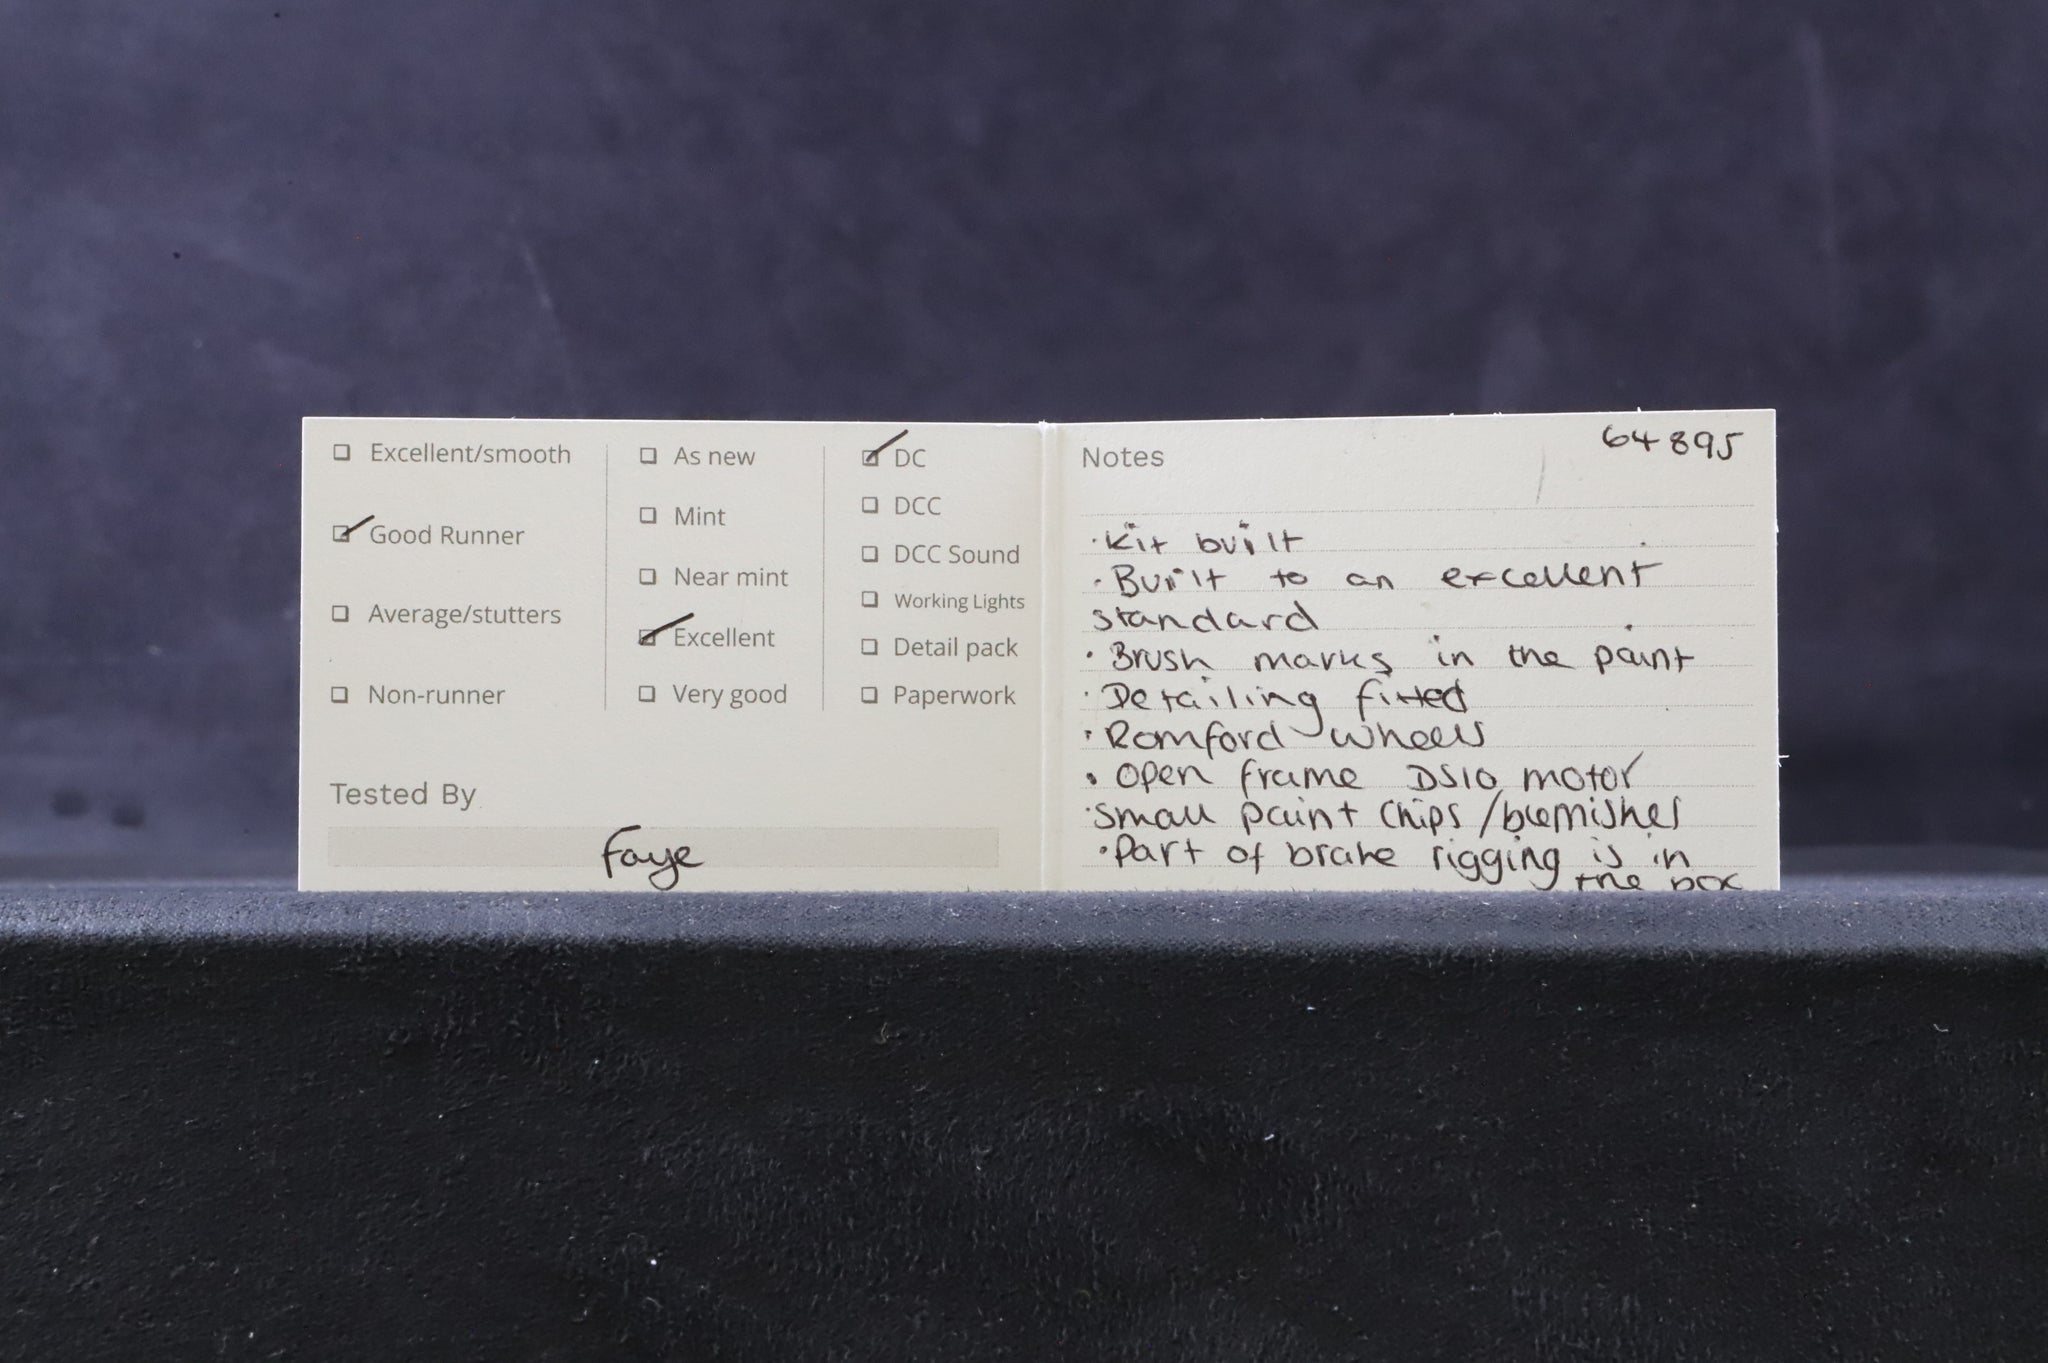 ☐ Excellent/smooth
☑ Good Runner
☐ Average/stutters
☐ Non-runner
☐ As new
☐ Mint
☐ Near mint
☑ Excellent
☐ Very good
☑ DC
☐ DCC
☐ DCC Sound
☐ Working Lights
☐ Detail pack
☐ Paperwork
Tested By
Faye
64895
Notes
·Kit built
·Built to an excellent
standard
·Brush marks in the paint
·Detailing fitted
·Romford wheels
·Open frame DS10 motor
·small paint chips/blemishes
·Part of brake rigging is in
the box